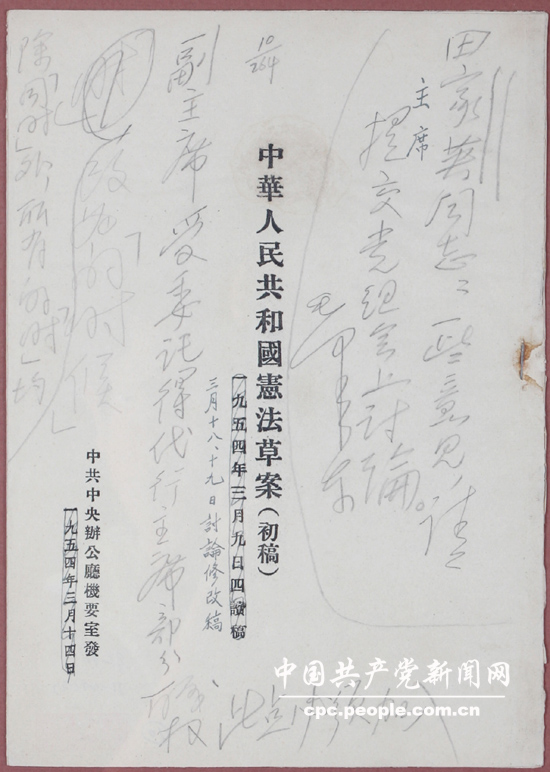 田家英同志：一些意見，請
提交党组会上討論。
毛泽东
主席
10/264
中華人民共和國憲法草案（初稿）
一九五四年三月九日四讀稿
三月十八、十九日討論修改稿
副主席受委託得代行主席部分職权
此点
加入
中共中央辦公廳機要室發
一九五四年三月十四日
改为
的时候
除「同时」外，所有的「时」均
中国共产党新闻网
cpc.people.com.cn